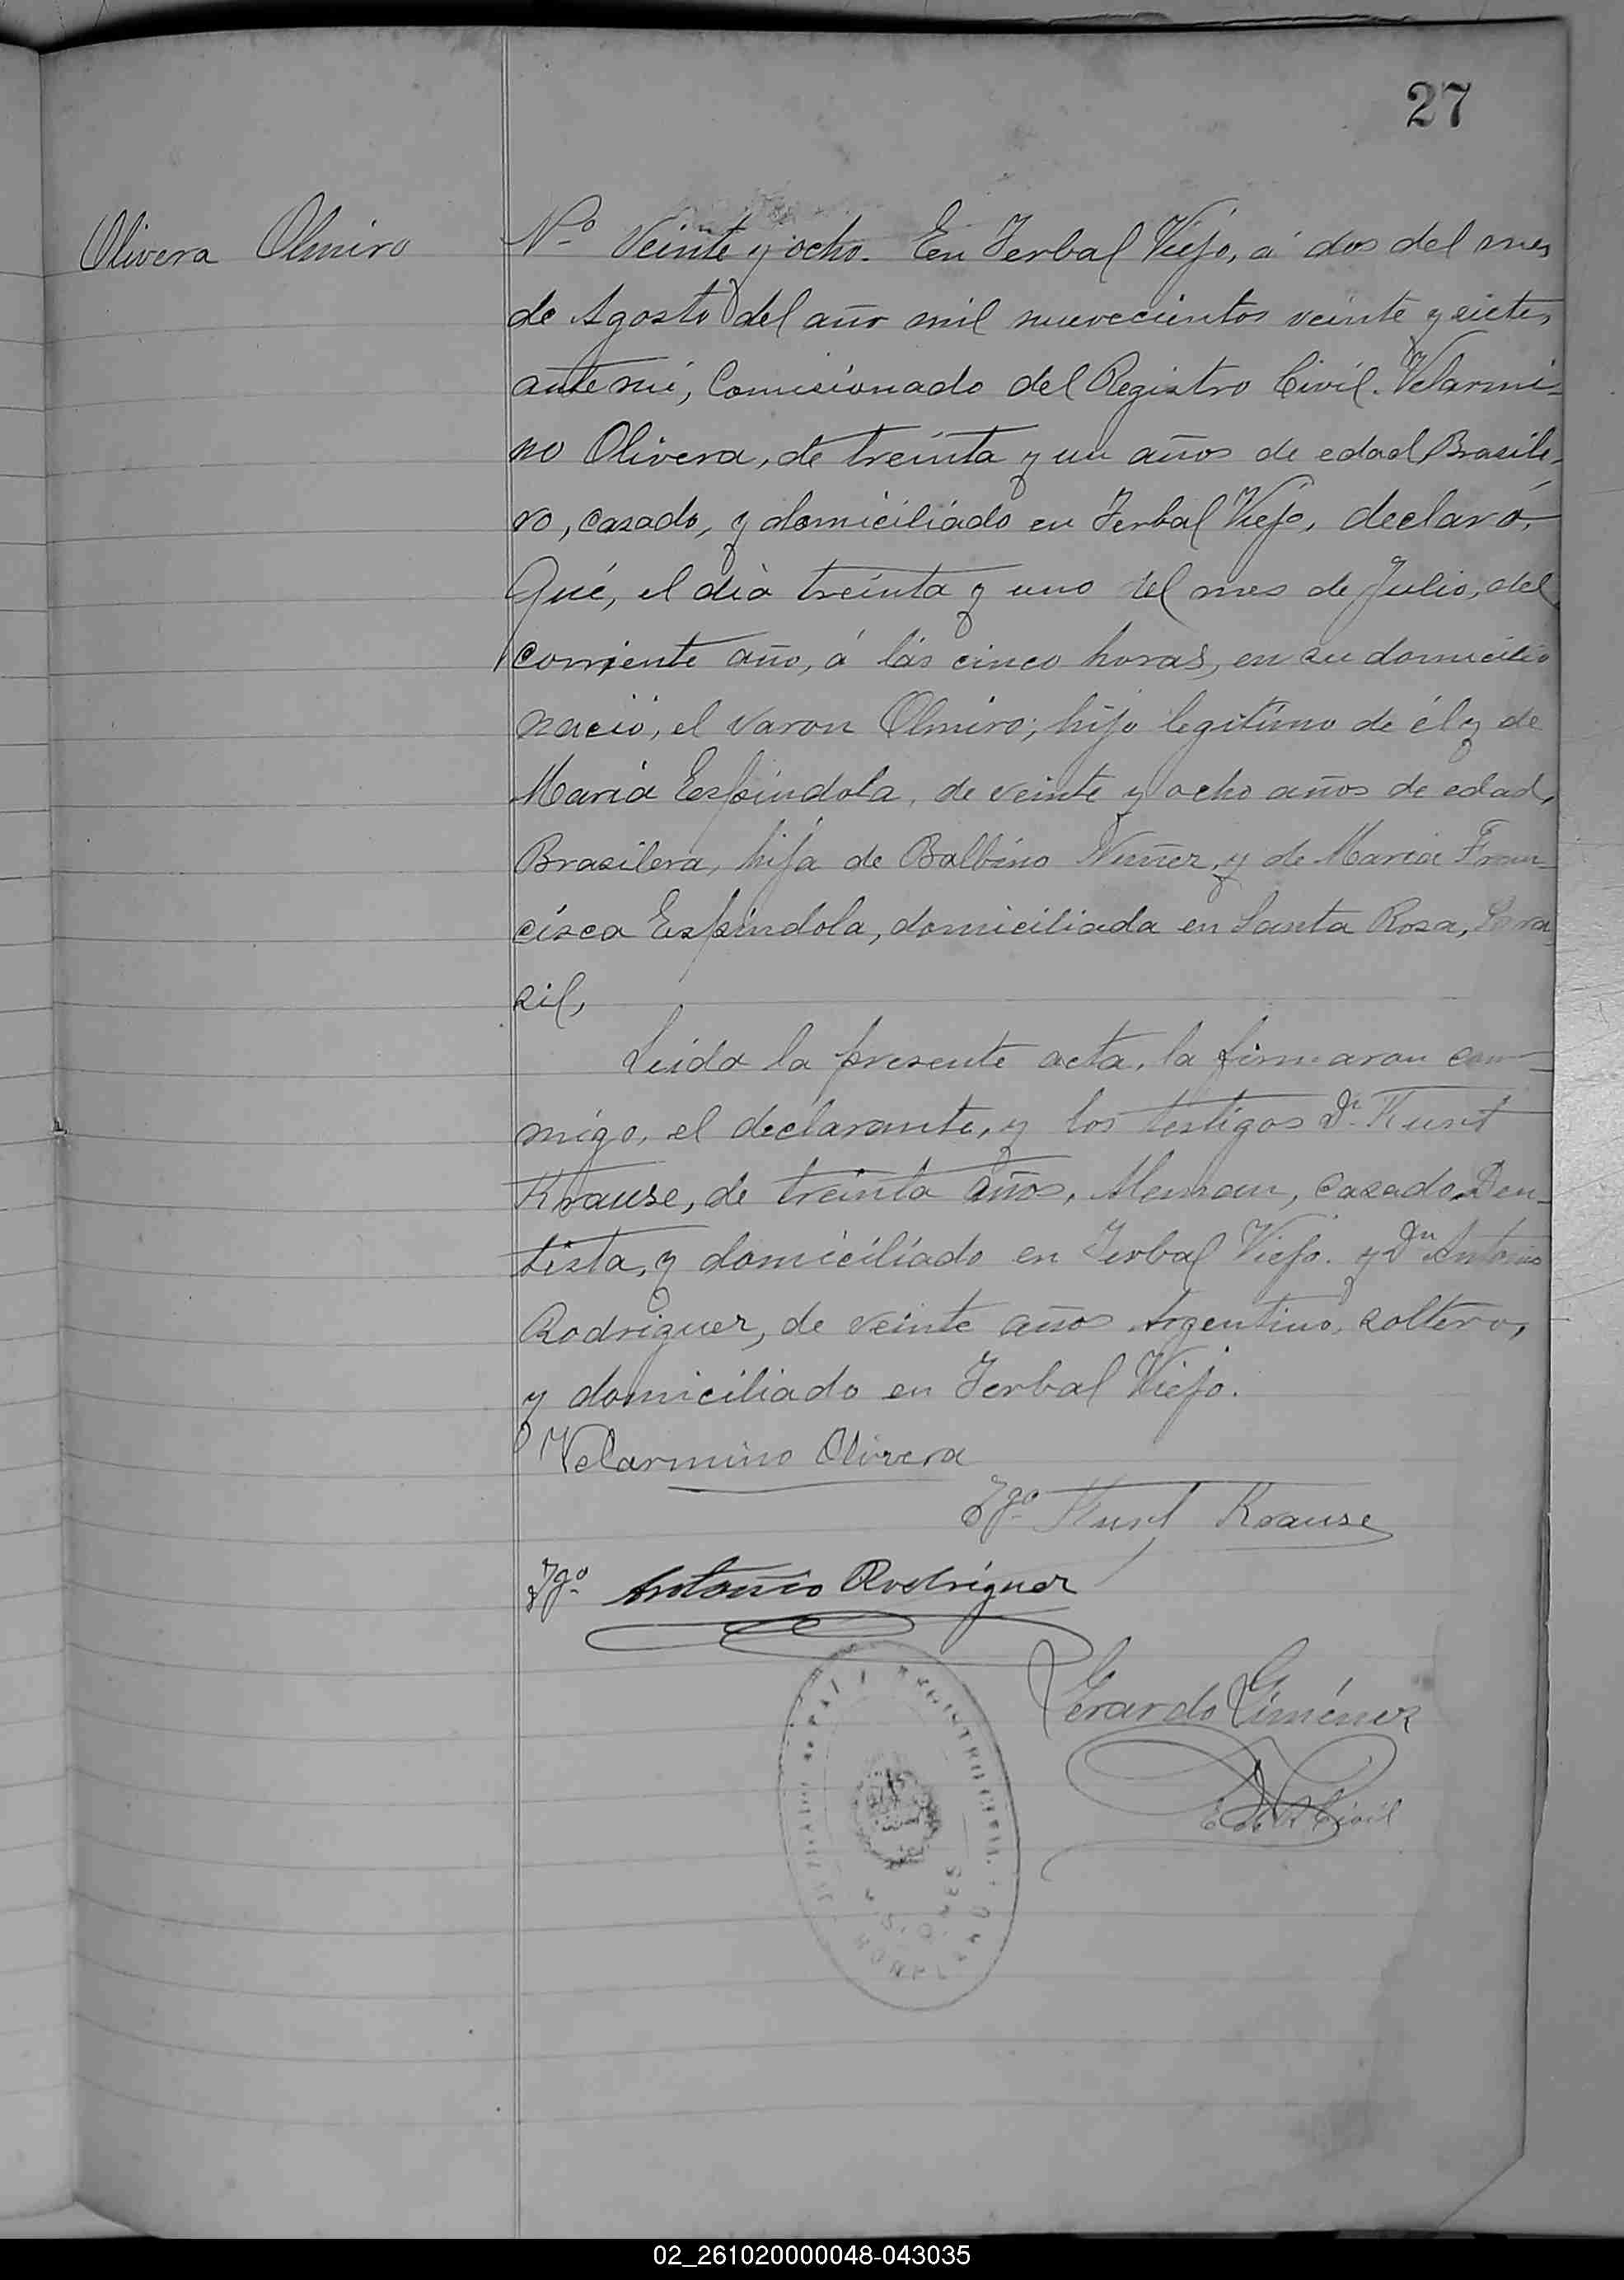 27
Olivera Olmiro
Nº Veinte y ocho. En Yerbal Viejo, á dos del mes
de Agosto del año mil nuevecientos veinte y siete,
ante mi, Comisionado del Registro Civil. Velarmi-
no Olivera, de treinta y un años de edad, Brasile-
ro, casado, y domiciliado en Yerbal Viejo, declaró,
Qué, el dia treinta y uno del mes de Julio, del
corriente año, á las cinco horas, en su domicilio
nació, el varon Olmiro; hijo legitimo de él y de
Maria Espindola, de veinte y ocho años de edad,
Brasilera, hija de Balbino Nuñez, y de Maria Fran-
cisca Espindola, domiciliada en Santa Rosa, Bra
sil,
Leida la presente acta, la firmaron con-
migo, el declarante, y los testigos Dn Kurt
Krause, de treinta años, Aleman, casado, Den-
tista, y domiciliado en Yerbal Viejo. y Dn Antonio
Rodriguez, de veinte años Argentino, soltero,
y domiciliado en Yerbal Viejo.
Velarmino Olivera
Tgo Kurt Krause
Tgo Antonio Rodriguez
Gerardo Giménez
REGISTRO CIVIL
Civil
02_261020000048-043035